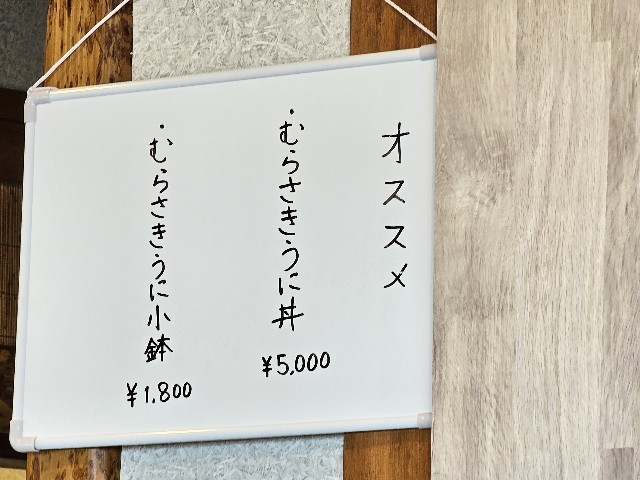 オススメ
・むらさきうに丼
¥5,000
・むらさきうに小鉢
¥1,800